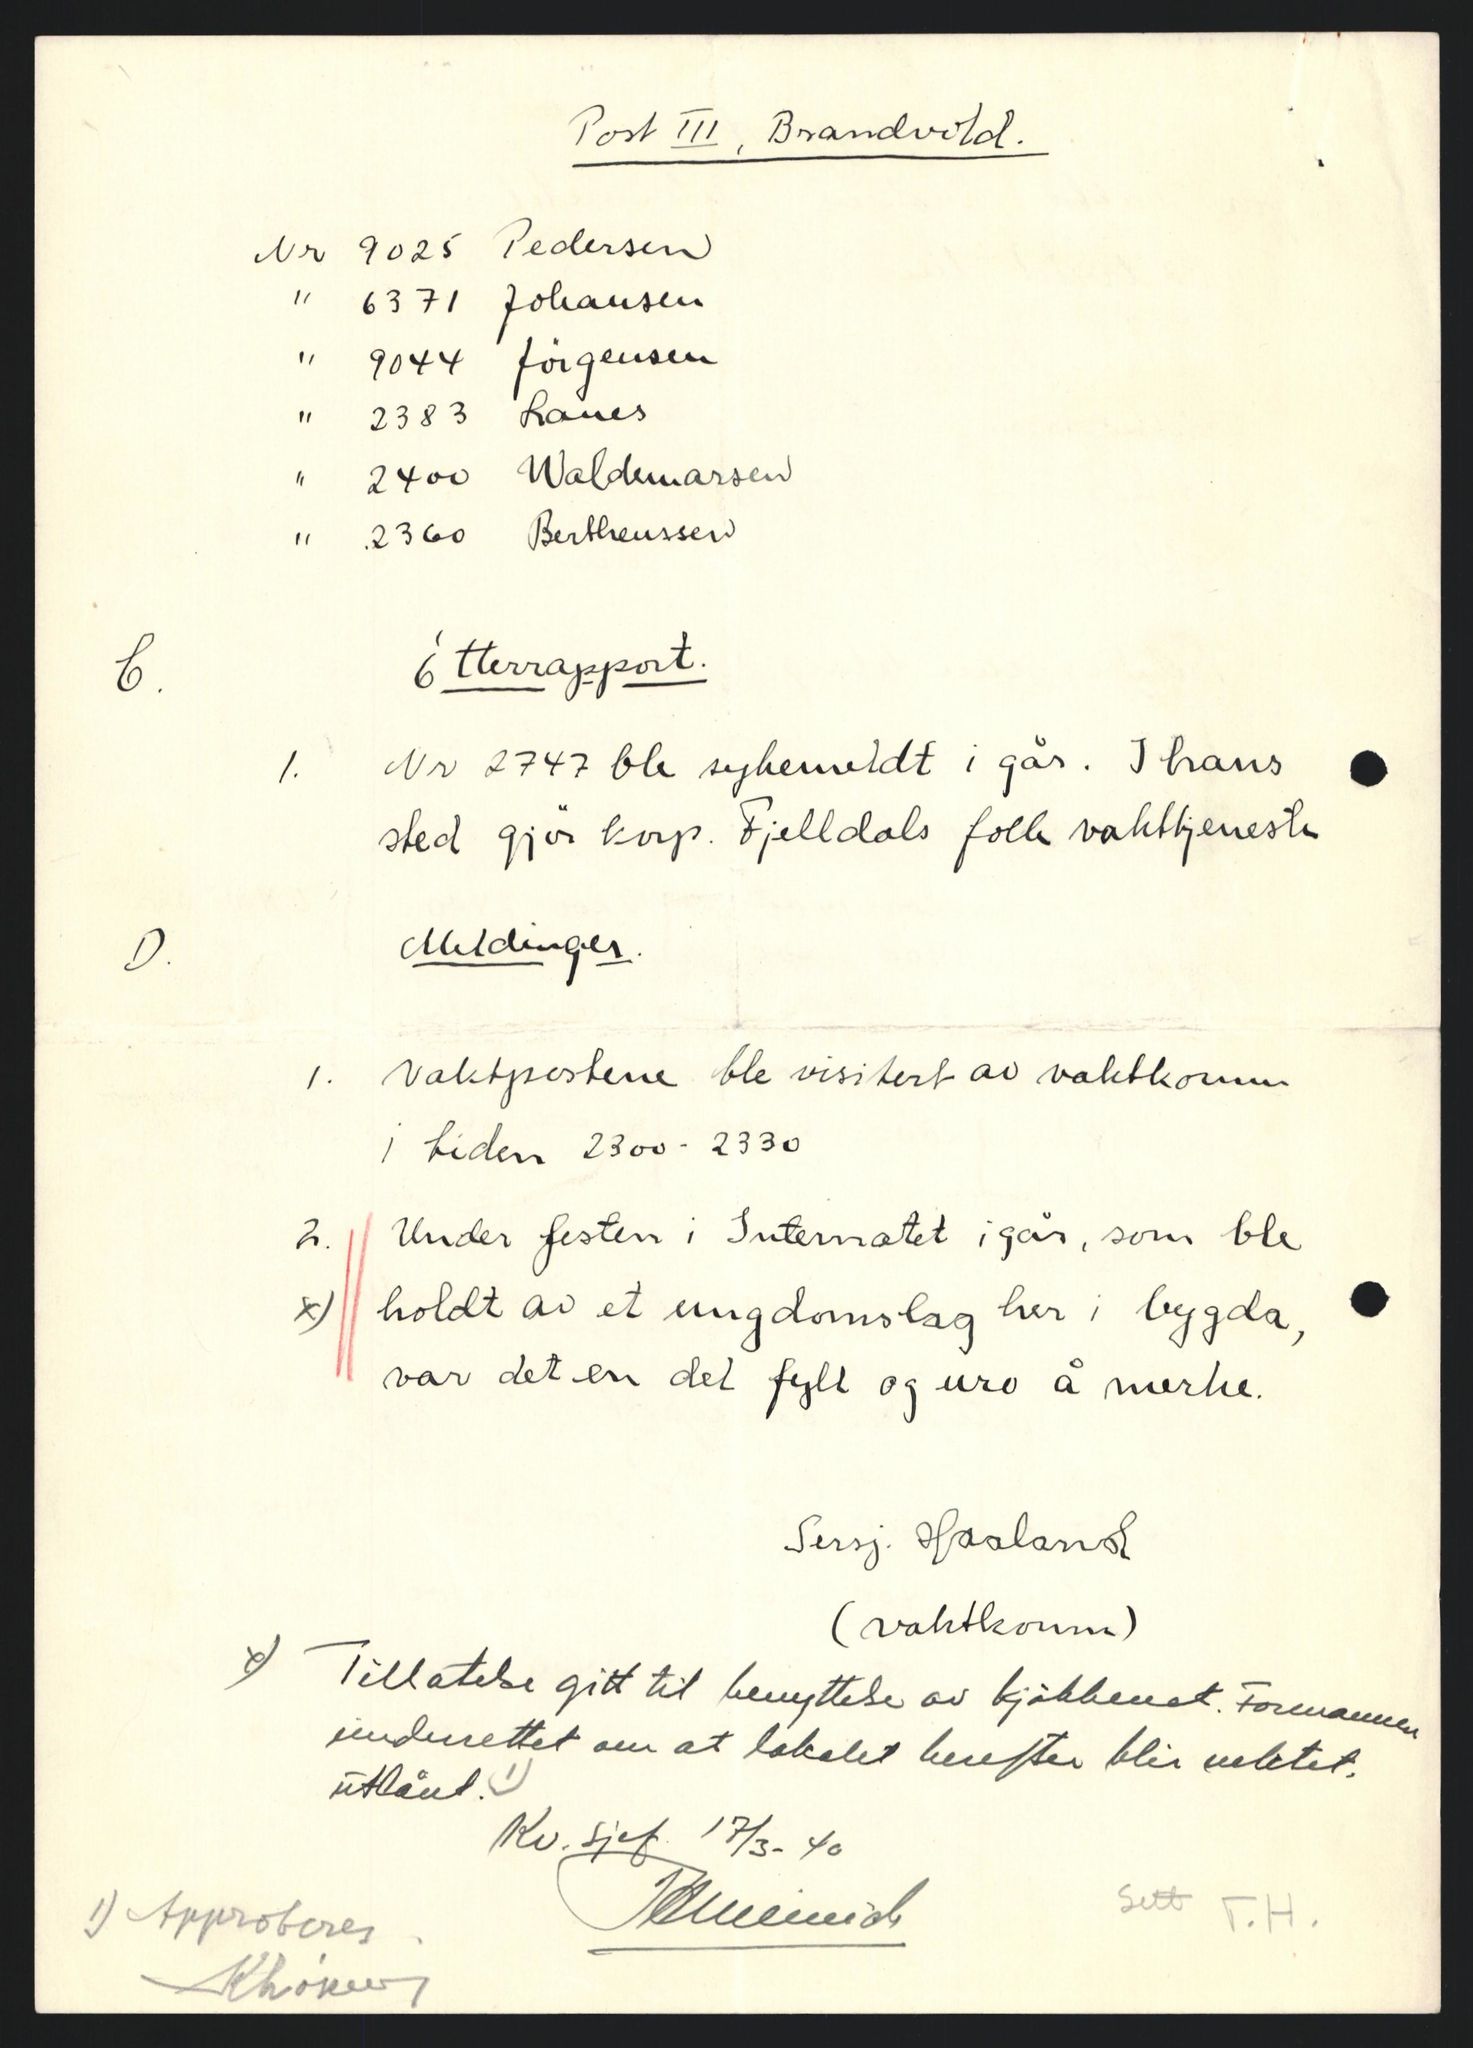 Post III, Brandvold.
Nr 9025 Pedersen
" 6371 Johansen
" 9044 Jörgensen
" 2383 Lanes
" 2400 Waldemarsen
" 2360 Bertheussen
C. Etterrapport.
1. Nr 2747 ble sykemeldt i går. I hans
sted gjör korp. Fjelldals folk vakttjeneste
D. Meldinger.
1. Vaktpostene ble visitert av vaktkomm
i tiden 2300 - 2330
2. Under festen i Internatet igår, som ble
x) holdt av et ungdomslag her i bygda,
var det en del fyll og uro å merke.
Sersj. Haaland
(vaktkomm)
x) Tillatelse gitt til benyttelse av kjökkenet. Formannen
underrettet om at lokalet herefter blir nektet
utlånt. 1)
Kv. sjef 17/3-40
1) Approberes
Sett T.H.